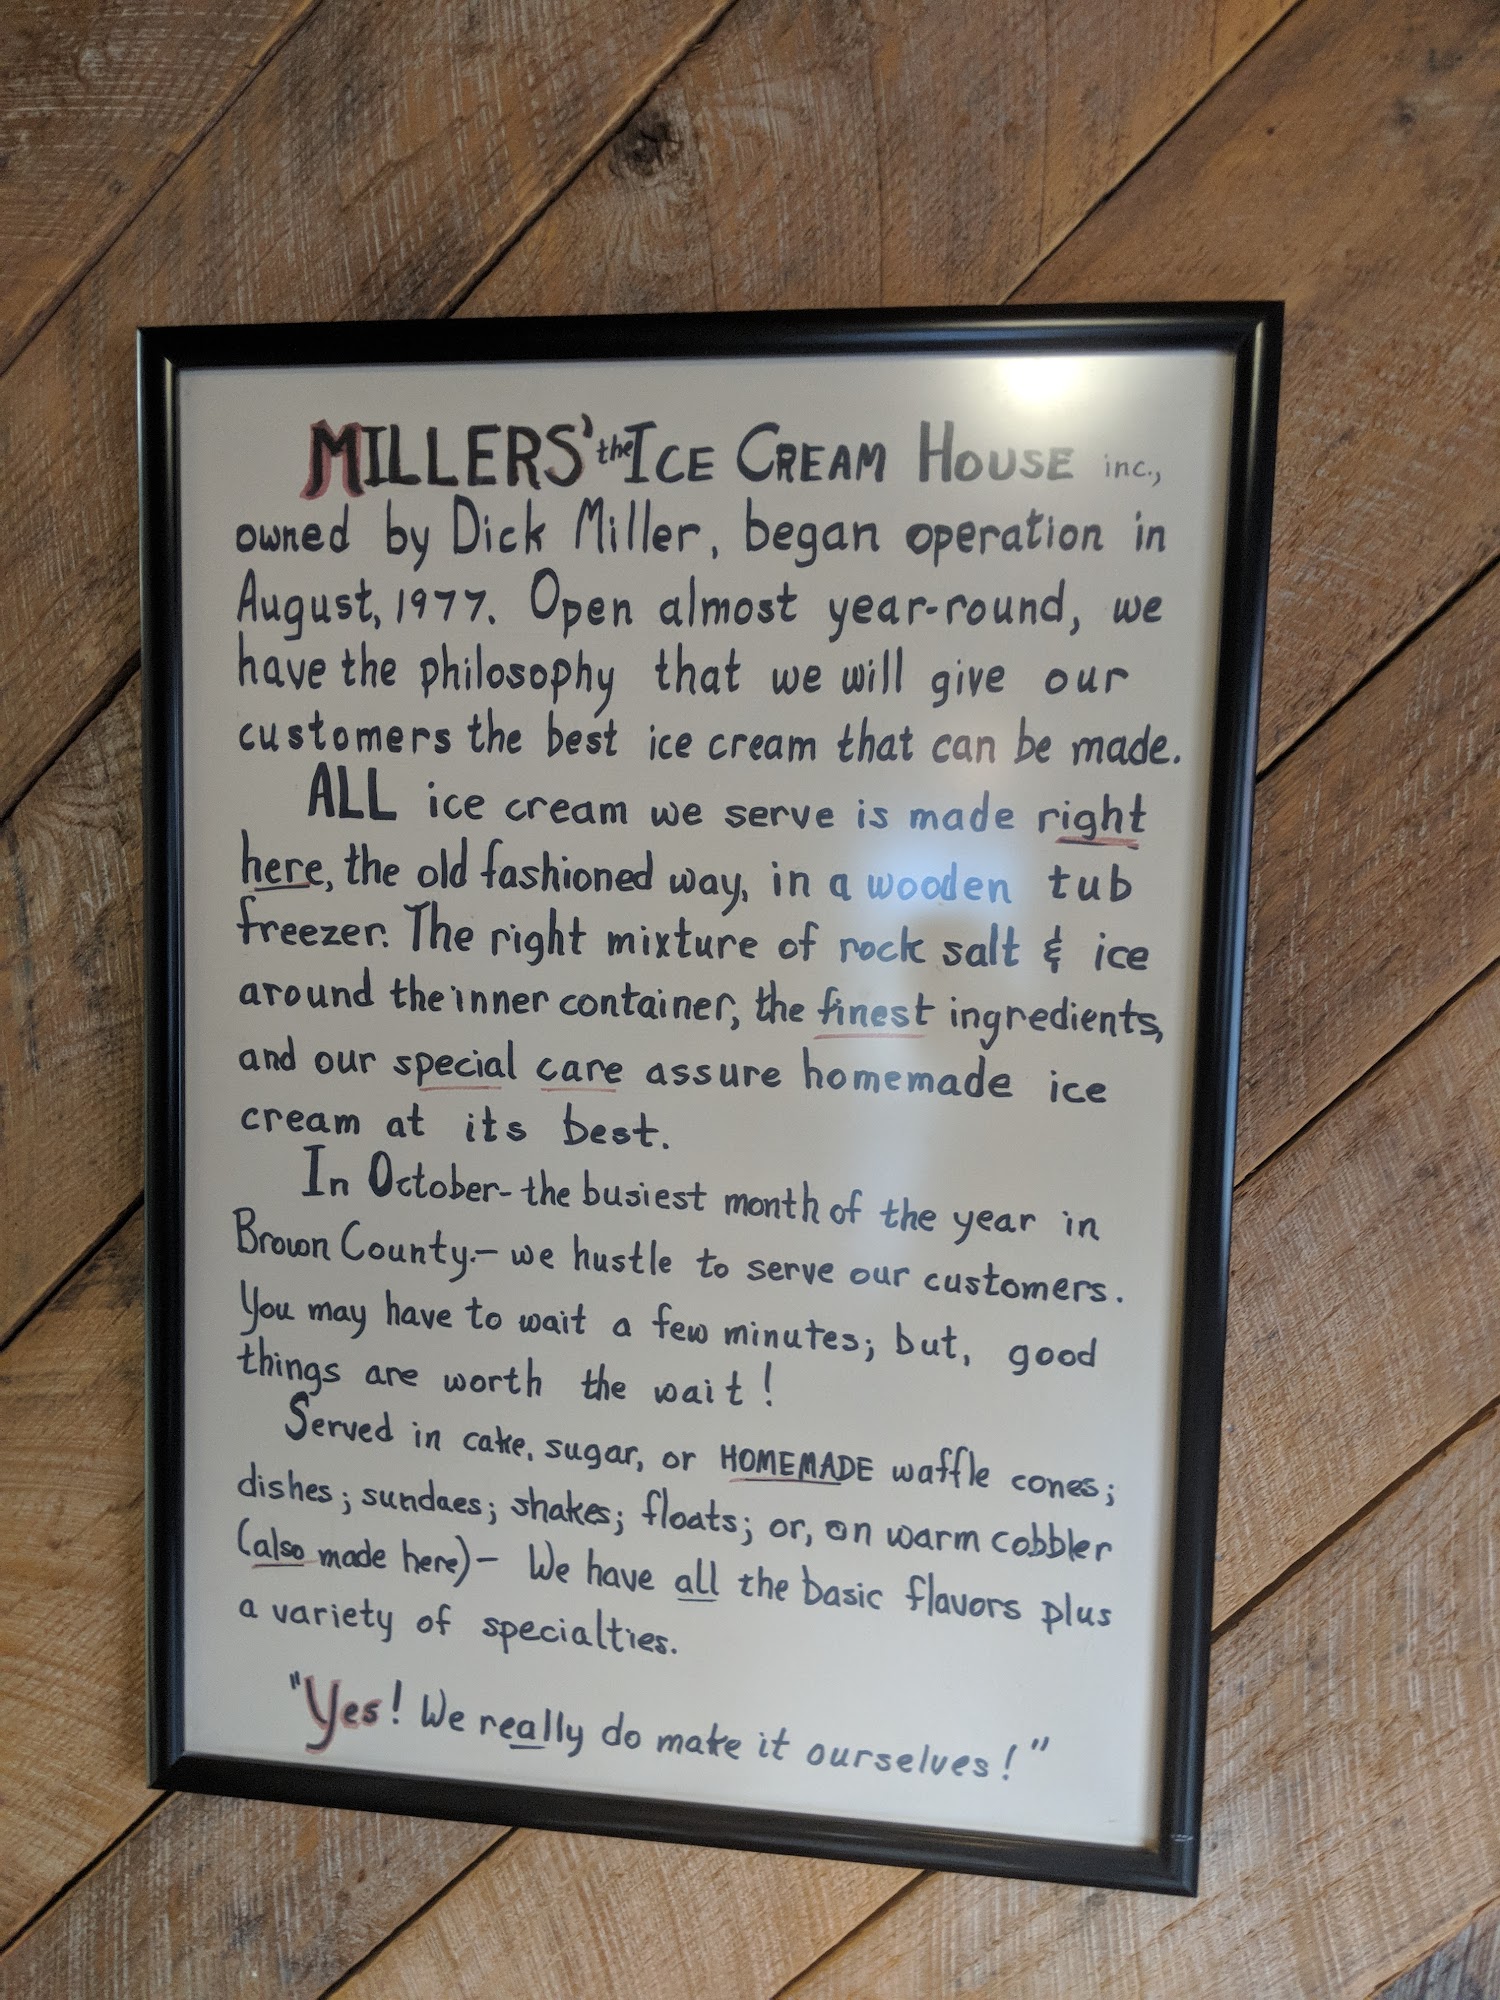 MILLERS' the ICE CREAM HOUSE inc.,
owned by Dick Miller, began operation in
August, 1977. Open almost year-round, we
have the philosophy that we will give our
customers the best ice cream that can be made.
ALL ice cream we serve is made right
here, the old fashioned way, in a wooden tub
freezer. The right mixture of rock salt & ice
around the inner container, the finest ingredients,
and our special care assure homemade ice
cream at its best.
In October- the busiest month of the year in
Brown County.- we hustle to serve our customers.
You may have to wait a few minutes; but, good
things are worth the wait!
Served in cake, sugar, or HOMEMADE waffle cones;
dishes; sundaes; shakes; floats; or, on warm cobbler
(also made here)- We have all the basic flavors plus
a variety of specialties.
"Yes! We really do make it ourselves!"